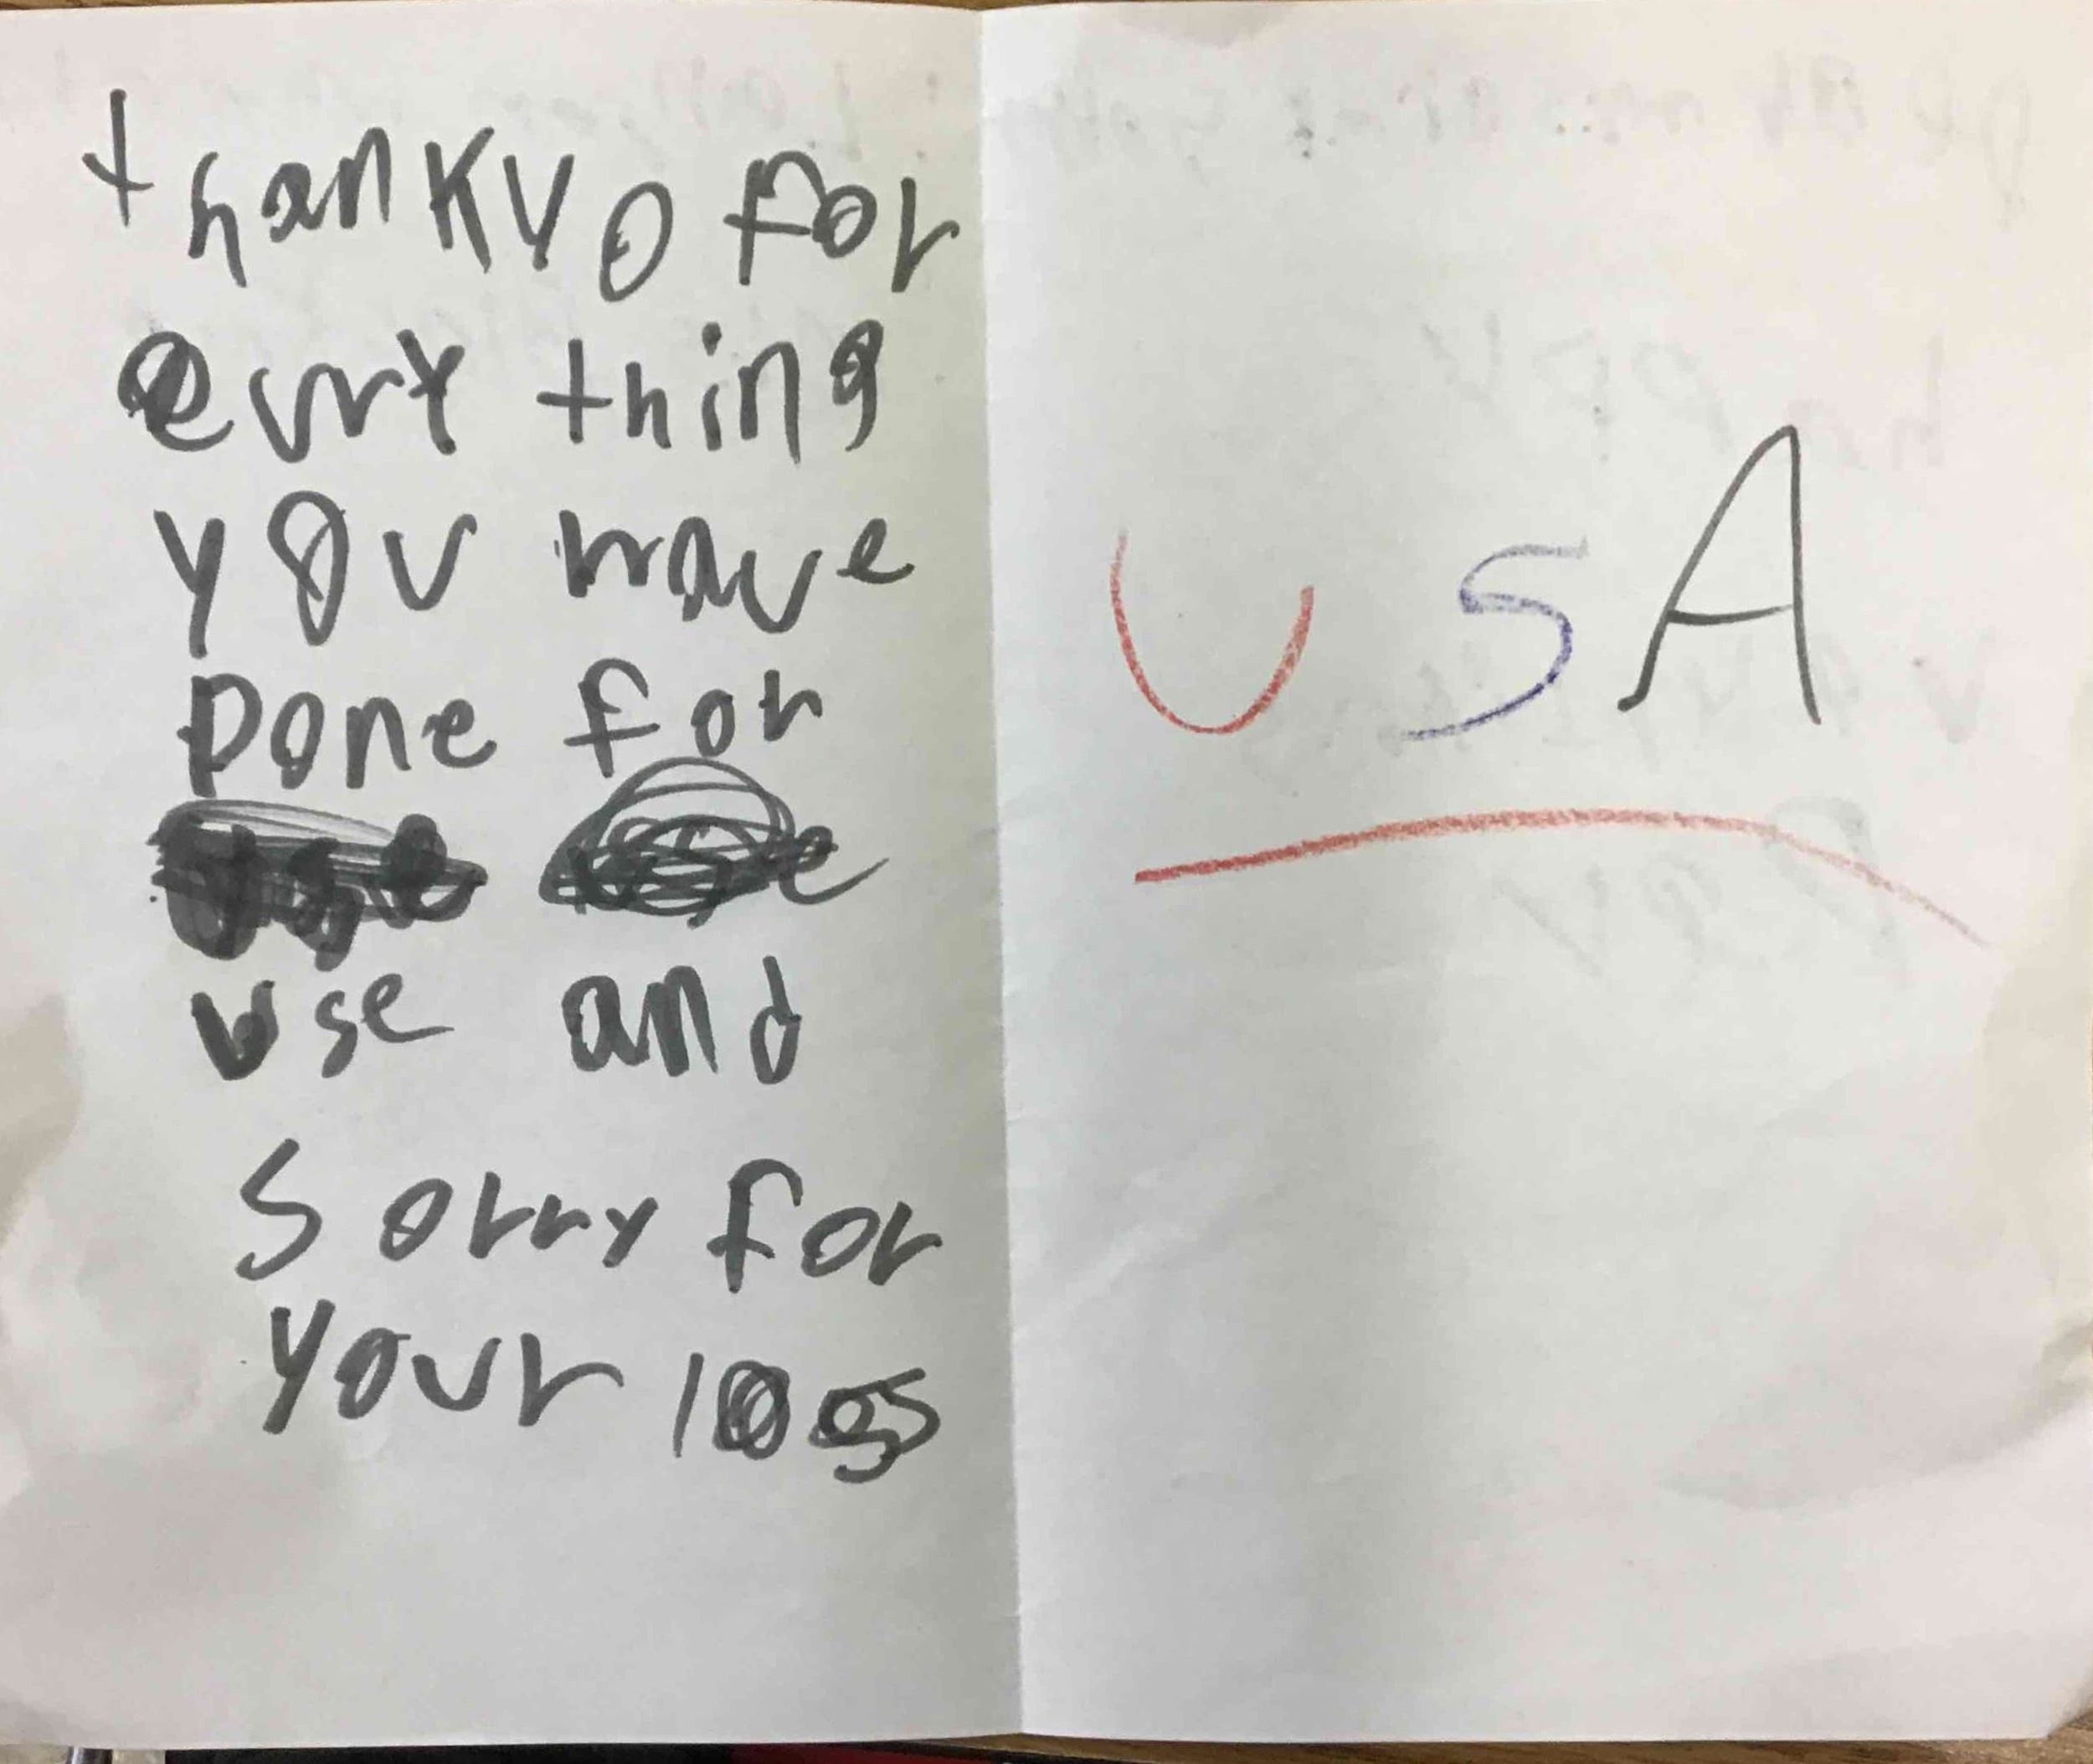 thank yo for
evry thing
you have
Done for
use and
sorry for
your loss
USA